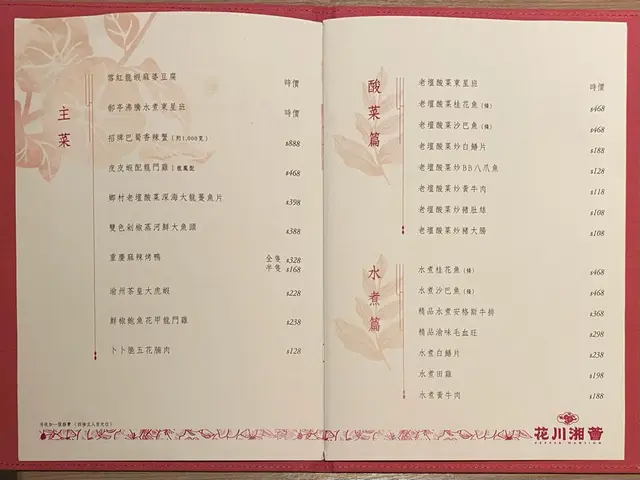 主菜
霧紅龍蝦麻婆豆腐 時價
郵亭沸騰水煮東星班 時價
招牌巴蜀香辣蟹 (約1,000克) $888
皮皮蝦配龍門雞 | 龍鳳配 $468
鄉村老壇酸菜深海大龍躉魚片 $398
雙色剁椒蒸河鮮大魚頭 $388
重慶麻辣烤鴨 全隻 $328
半隻 $168
渝州茶皇大虎蝦 $228
鮮椒鮑魚花甲龍門雞 $238
卜卜脆五花腩肉 $128
另收加一服務費
酸菜篇
老壇酸菜東星班 時價
老壇酸菜桂花魚 (條) $468
老壇酸菜沙巴魚 (條) $468
老壇酸菜炒白鱔片 $188
老壇酸菜炒BB八爪魚 $128
老壇酸菜炒黃牛肉 $118
老壇酸菜炒豬肚絲 $108
老壇酸菜炒豬大腸 $108
水煮篇
水煮桂花魚 (條) $468
水煮沙巴魚 (條) $468
精品水煮安格斯牛排 $368
精品渝味毛血旺 $298
水煮白鱔片 $238
水煮田雞 $198
水煮黃牛肉 $188
花川湘薈
PEPPER MANSION